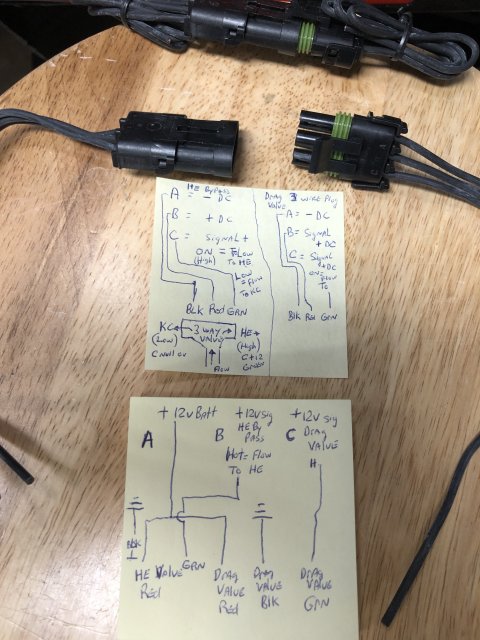 HE BYPASS
A = - DC
B = + DC
C = SIGNAL +
ON = FLOW
(High) TO HE
LOW
= FLOW
TO KC
BLK Red GRN
KC
(Low)
3 WAY
VALVE
HE
(High)
C +12
Green
Flow
Drag 3 WIRE Plug
VALVE
A = - DC
B = SIGNAL
+ DC
C = SIGNAL
+ DC
ON =
FLOW
TO
Blk Red GRN
+ 12v Batt
A
B
+12vsig
HE By
PASS
Hot = Flow
TO HE
+12v sig
C Drag
VALVE
H
Blk
HE VALVE
Red
GRN
Drag
VALVE
Red
Drag
VALVE
Blk
Drag
VALVE
GRN